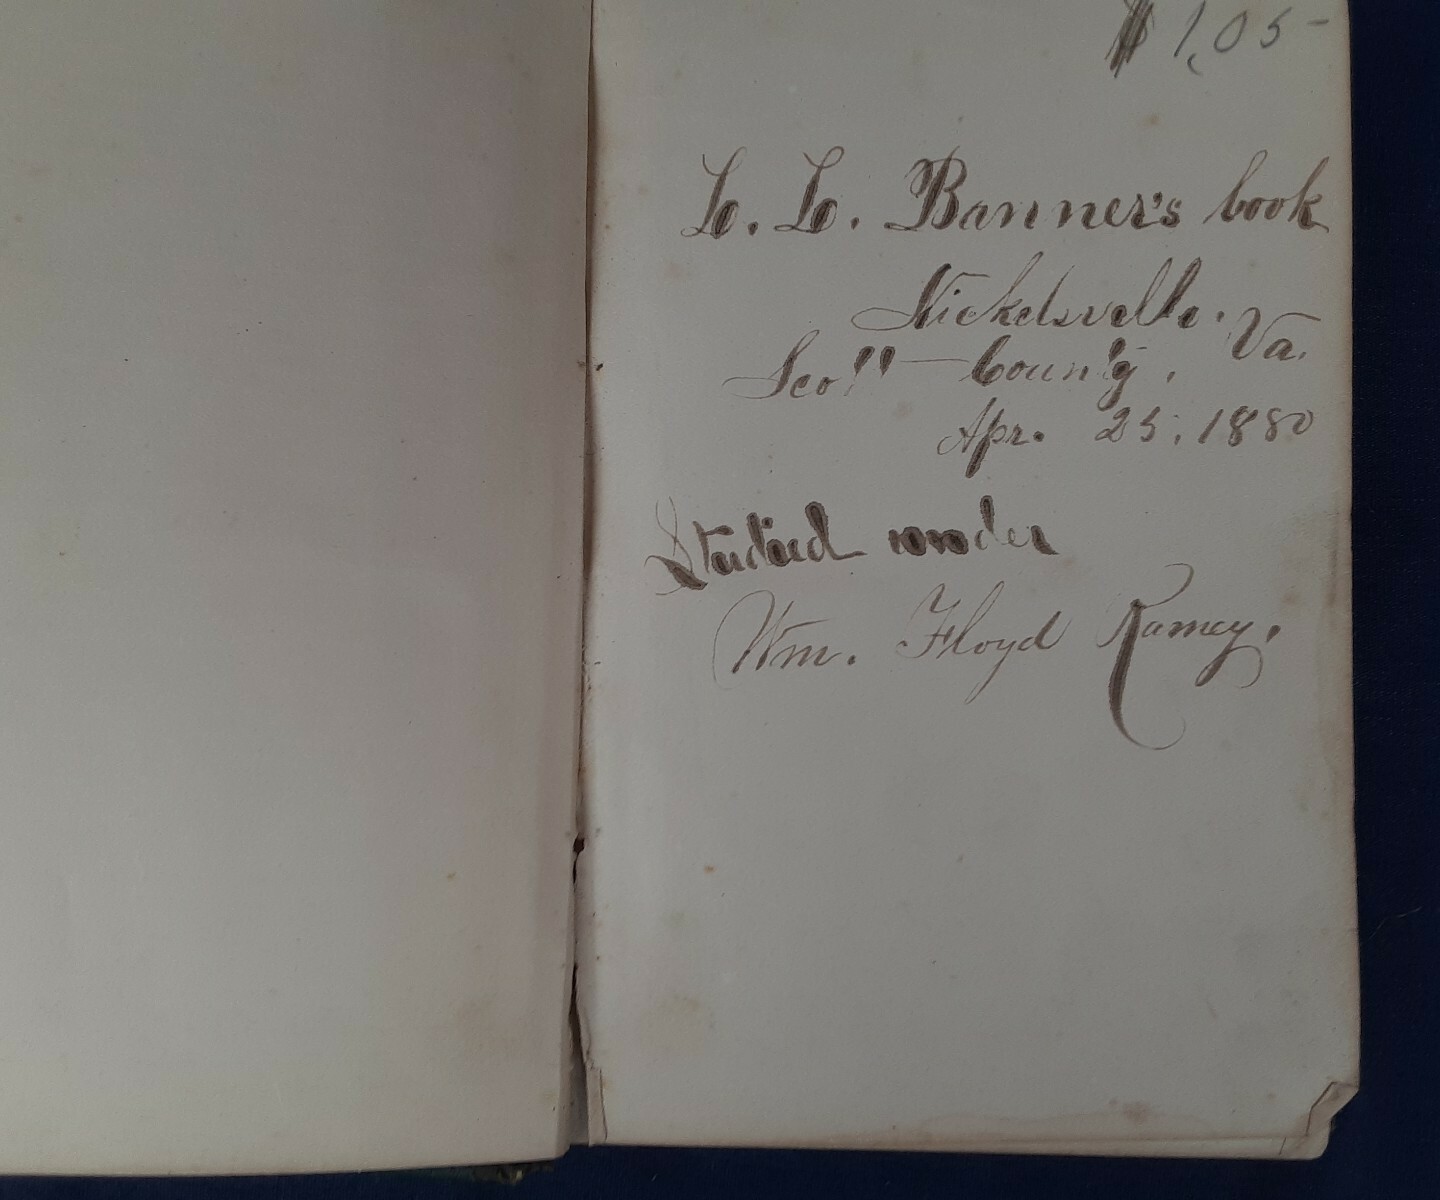 $1.05
L. L. Banner's book
Nickelsville. Va.
Scott County,
Apr. 25, 1880
Studied under
Wm. Floyd Ramey.